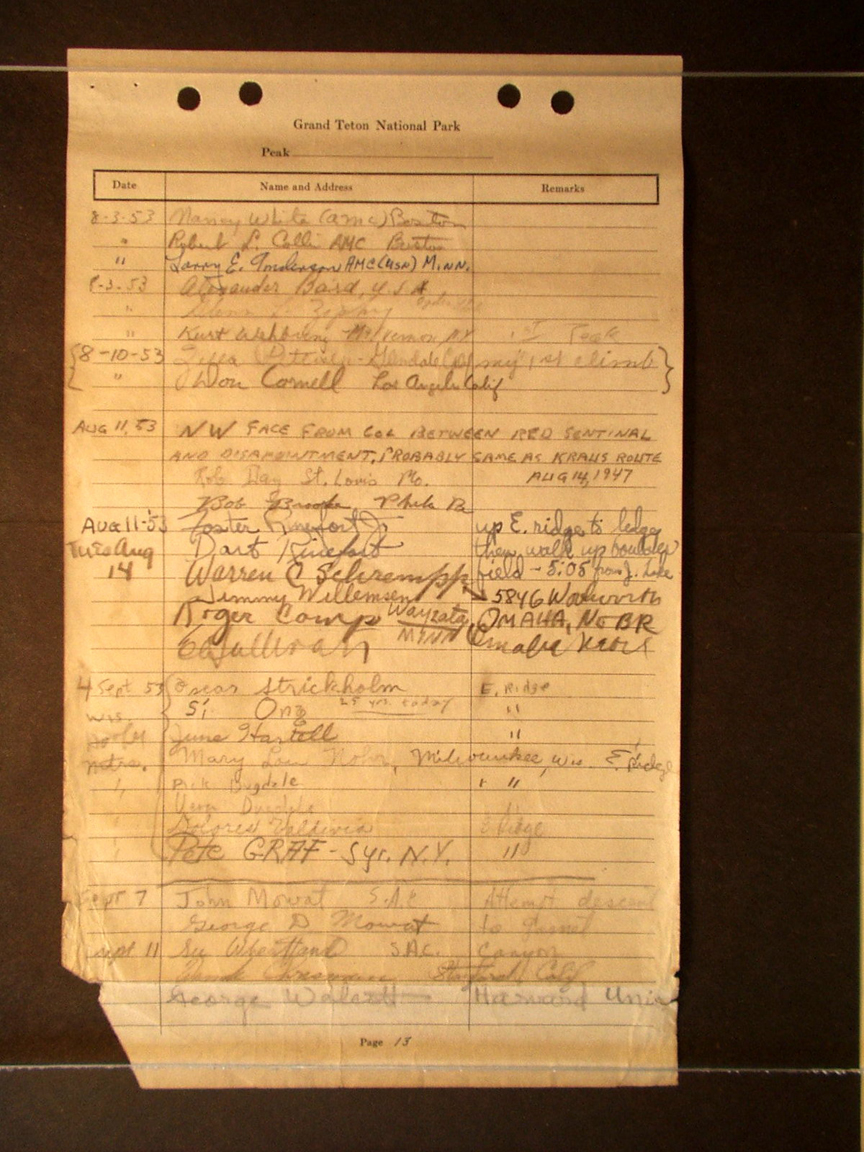 Grand Teton National Park
Peak
Date Name and Address Remarks
8-3-53 Nancy White (AMC) Boston
" Robert L. AMC Boston
" Larry E. AMC (USN) MINN.
8-3-53 Alexander Bard, U.S.A.
"
" Kurt N.Y. 1st Peak
8-10-53 Petersen - Glendale my 1st climb
" Don Cornell Los Angeles Calif
AUG 11, 53 NW FACE FROM COL BETWEEN RED SENTINAL
AND DISAPOINTMENT, PROBABLY SAME AS KRAUS ROUTE
Rob Day St. Louis Mo. AUG 14, 1947
Bob Phila Pa
AUG 11-53 Foster Rinefort Jr up E. ridge to ledge
Tues Aug Dart Rinefort then walk up boulder
14 Warren C Schrempp field - 5:05 from J. Lake
Jimmy Willemsen 5846 Woolworth
Roger Comp Wayzata, MINN OMAHA, NEBR
Sullivan Omaha Nebr
4 Sept 53 Oscar Strickholm E. Ridge
Wis Si Ong 25 yrs. today "
Hoofers June Hartell "
Mary Lou Nohr, Milwaukee, Wis. E. Ridge
" Dick Bugdale " "
Vern
" Dolores Valdivia E Ridge
" Pete GRAF - Syr. N.Y. "
Sept 7 John Mowat S.A.C Attempt descent
George D Mowat to Garnet
Sept 11 Su Wheatland S.A.C. Canyon
Stanford, Calif
George Harvard Univ
Page 13